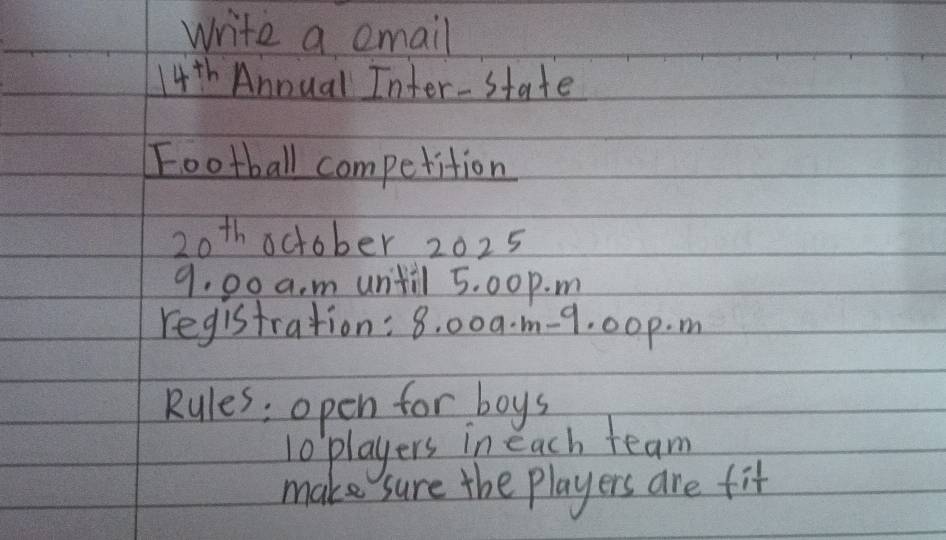 Write a email
14th Annual Inter-state
Football competition
20th october 2025
9.00 a.m until 5.00p.m
registration: 8.00a.m-9.00p.m
Rules: open for boys
10 players in each team
make sure the players are fit